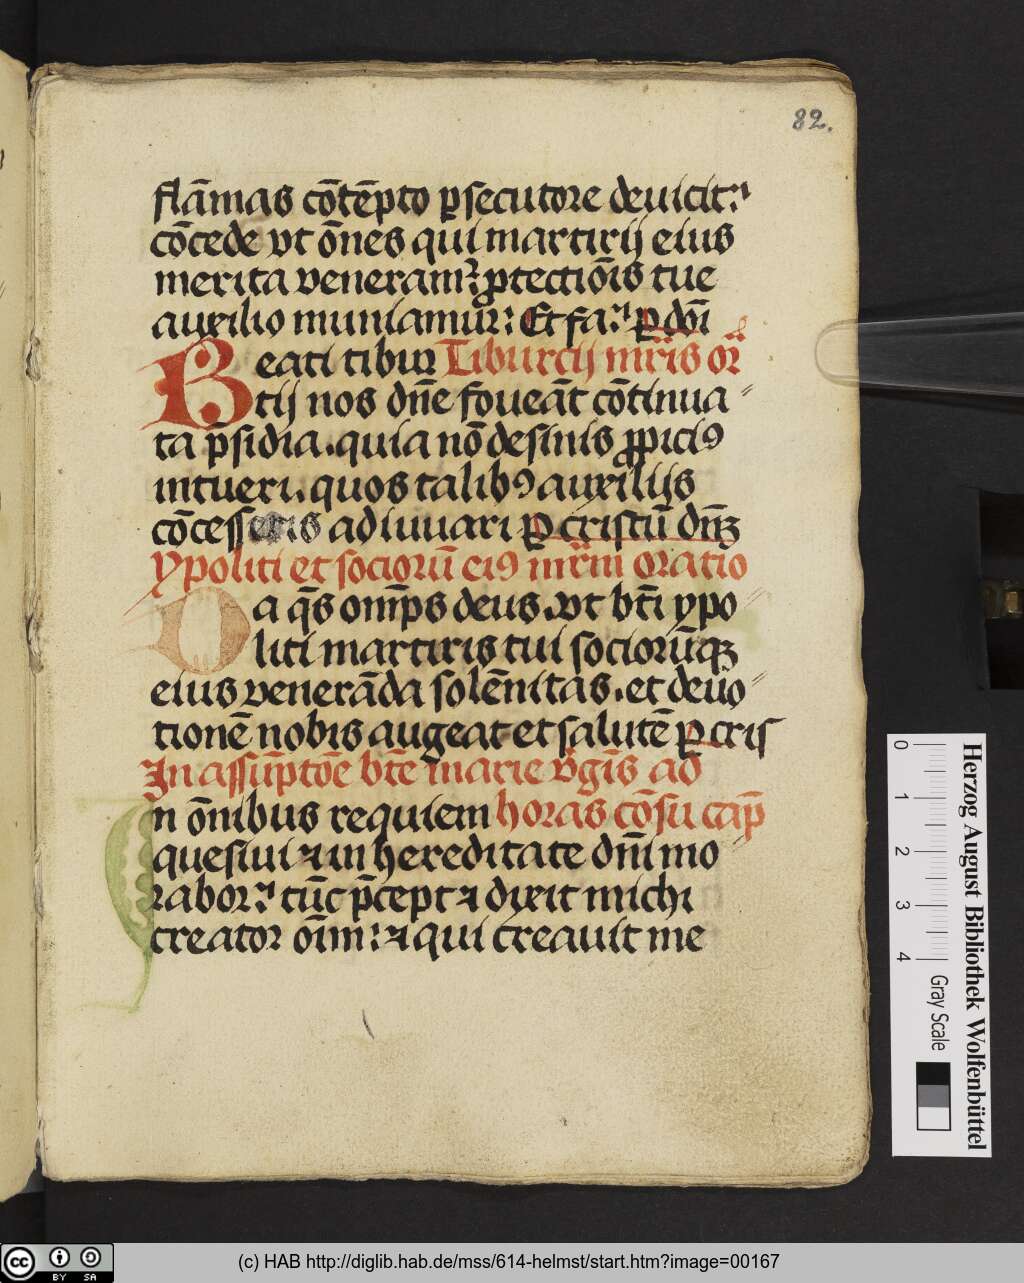 82.
flāmas cōtēpto ꝑsecutore deuicit:
cōcede vt ōnes qui martirij eius
merita veneram̄ꝛ ꝓtectiōīs tue
auxilio muniamur: Et fa: ꝑ dn̄i
Beati tibur Tiburcij mr̄is or̄
tij nos dn̄e foueāt cōtinua〃
ta p̄sidia. quia nō desinis ꝓpiciꝰ
intueri. quos talibꝰ auxilijs
cōcesseris adiuuari ꝑ cristū dn̄ꝫ
Ypoliti et socioru̅ eiꝰ mr̄m oratio
Da q̄s om̄ps deus. vt bt̄i ypo〃
liti martiris tui socioru̅qꝫ
eius venerāda solēnitas. et deuo〃
tionē nobis augeat et salutē ꝑ cris
In assūptōe bt̄e marie v̄gīs ad
In ōnibus requiem horas cōsu cap̄
quesiui ⁊ in hereditate dn̄i mo
rabor: tūc p̄cept ⁊ dixit michi
creator oīm: ⁊ qui creauit me
0 1 2 3 4
Gray Scale
Herzog August Bibliothek Wolfenbüttel
cc BY SA
(c) HAB http://diglib.hab.de/mss/614-helmst/start.htm?image=00167